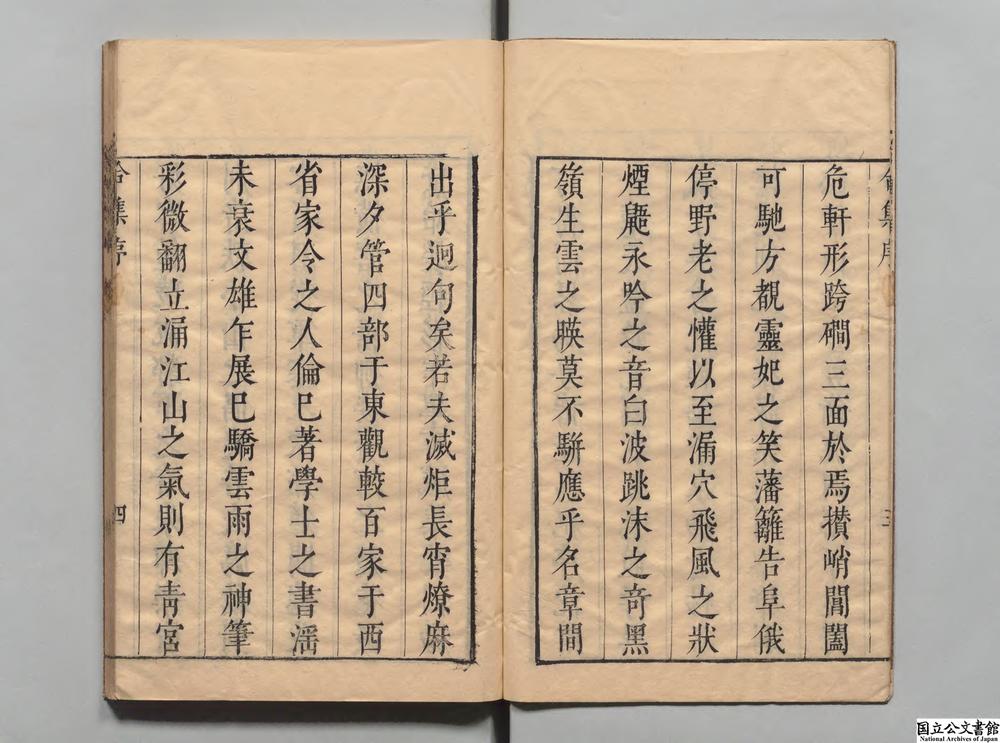 危軒形跨磵三面於焉攢峭閶闔
可馳方覩靈妃之笑藩籬告阜俄
停野老之懽以至漏穴飛風之狀
煙鼯永吟之音白波跳沫之奇黑
嶺生雲之暎莫不駢應乎名章間
出乎迥句矣若夫滅炬長宵燎麻
深夕管四部于東觀較百家于西
省家令之人倫巳著學士之書滛
未衰文雄乍展巳驕雲雨之神筆
彩微翻立涌江山之氣則有靑宮
合集序
四
国立公文書館
National Archives of Japan